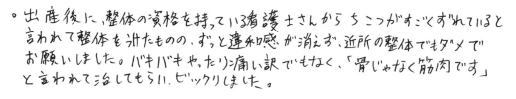 。出産後に、整体の資格を持っている看護士さんからちこつがすごくずれていると
言われて整体を渋たものの、ずっと違和感が消えず、近所の整体でもダメで
お願いしました。バキバキやったり痛い訳でもなく、「骨じゃなく筋肉です」
と言われて治してもらい、ビックリしました。